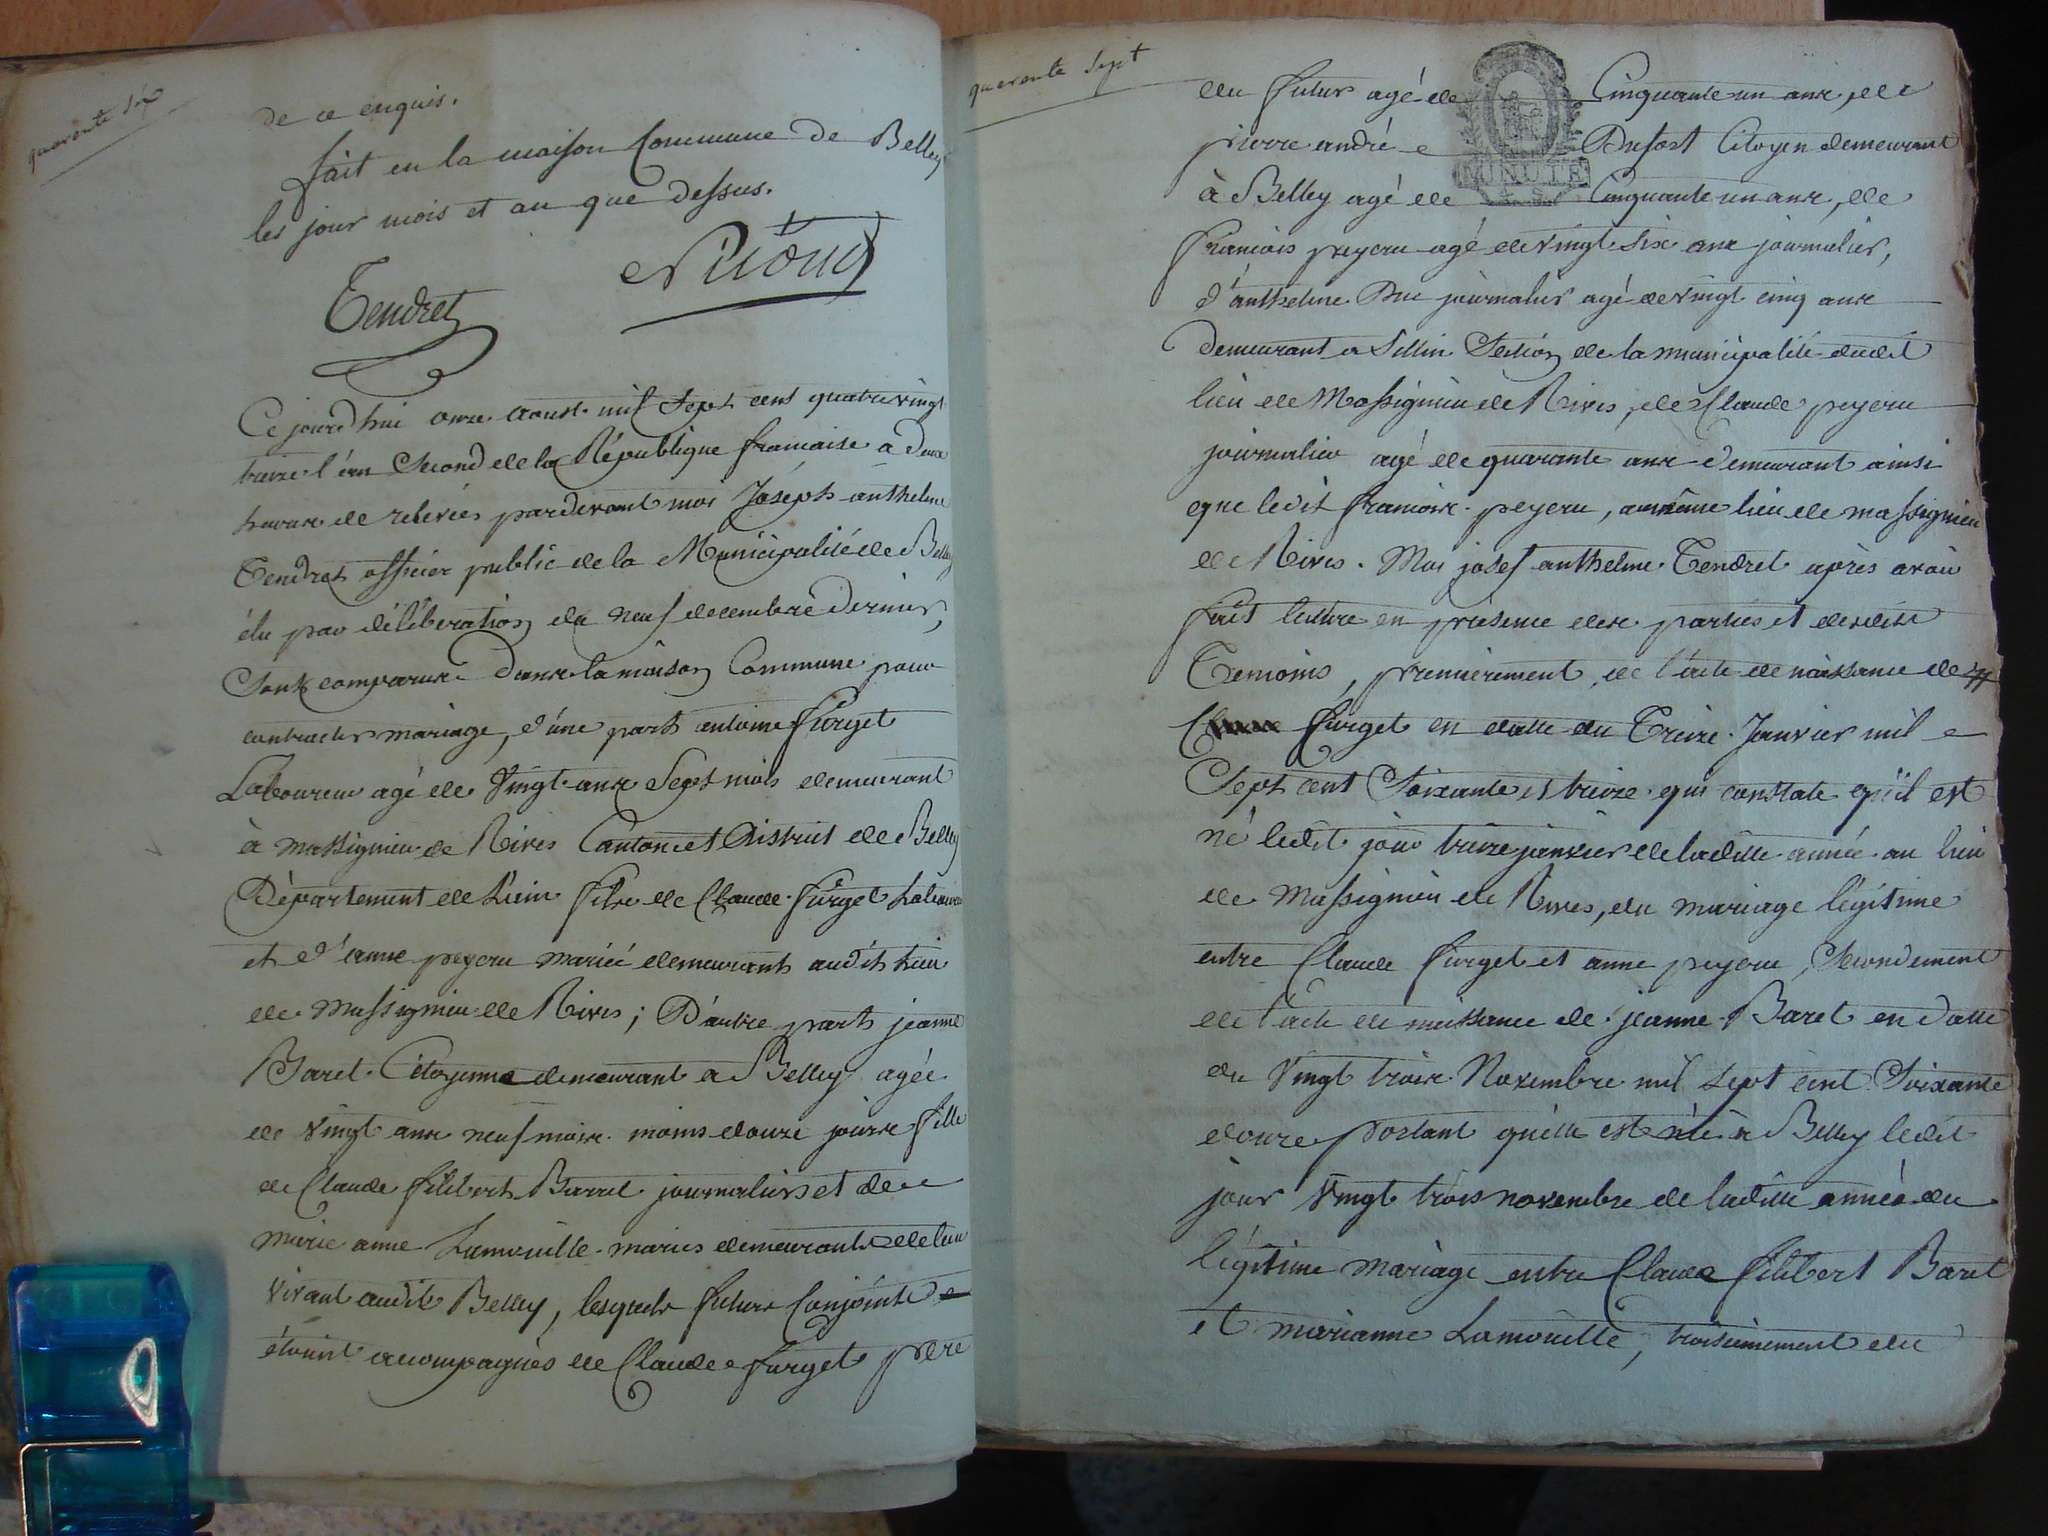 quarente six
de ce enquis.
fait en la maison Commune de Belley
les jour mois et an que dessus.
Tendret
Ce jourd'hui onze aoust mil sept cent quatrevingt
treize l'an second de la République francaise a deux
heures de relevées pardevant moi Joseph anthelme
Tendret officier public de la Municipalité de Belley
élu par délibération du neuf decembre dernier,
sont comparus dans la maison Commune pour
contracter mariage, d'une part antoine furget
Laboureur agé de Vingt ans sept mois demeurant
à massignieu de Rives Canton et District de Belley
Département de L'ain fils de Claude furget Laboureur
et d'anne peyeru mariés demeurants audit Lieu
de Massignieu de Rives ; D'autre part jeanne
Baret Citoyenne demeurant a Belley agée
de Vingt ans neuf mois moins douze jours fille
de Claude filibert Barret journaliers et de
marie anne Lamouille mariés demeurants de leur
vivant audit Belley, lesquels futurs Conjoints
étoient acompagnés de Claude furget père
quarente sept
du futur agé de Cinquante un ans, de
pierre andré Dufort Citoyen demeurant
MINUTE
à Belley agé de Cinquante un ans, de
francois peyeru agé de vingt six ans journalier,
d'anthelme Duc journalier agé de vingt cinq ans
demeurant a Sillin Section de la municipalité dudit
lieu de Massignieu de Rives, de Claude peyeru
journalier agé de quarante ans demeurant ainsi
que ledit francois peyeru, au même lieu de massignieu
de Rives. Moi josef anthelme Tendret après avoir
fait lecture en présence des parties et desdits
Temoins, premierement de l'acte de naissance de
furget en datte du Treize Janvier mil
Sept cent Soixante et treize qui constate qu'il est
né ledit jour treize janvier de laditte année au lieu
de Massignieu de Rives, du mariage légitime
entre Claude furget et anne peyeru, Secondement
de l'acte de naissance de jeanne Baret en datte
du Vingt trois Novembre mil sept cent Soixante
douze portant qu'elle est née à Belley ledit
jour Vingt trois novembre de laditte année du
légitime mariage entre Claude filibert Baret
et marianne Lamouille, troisiemement du